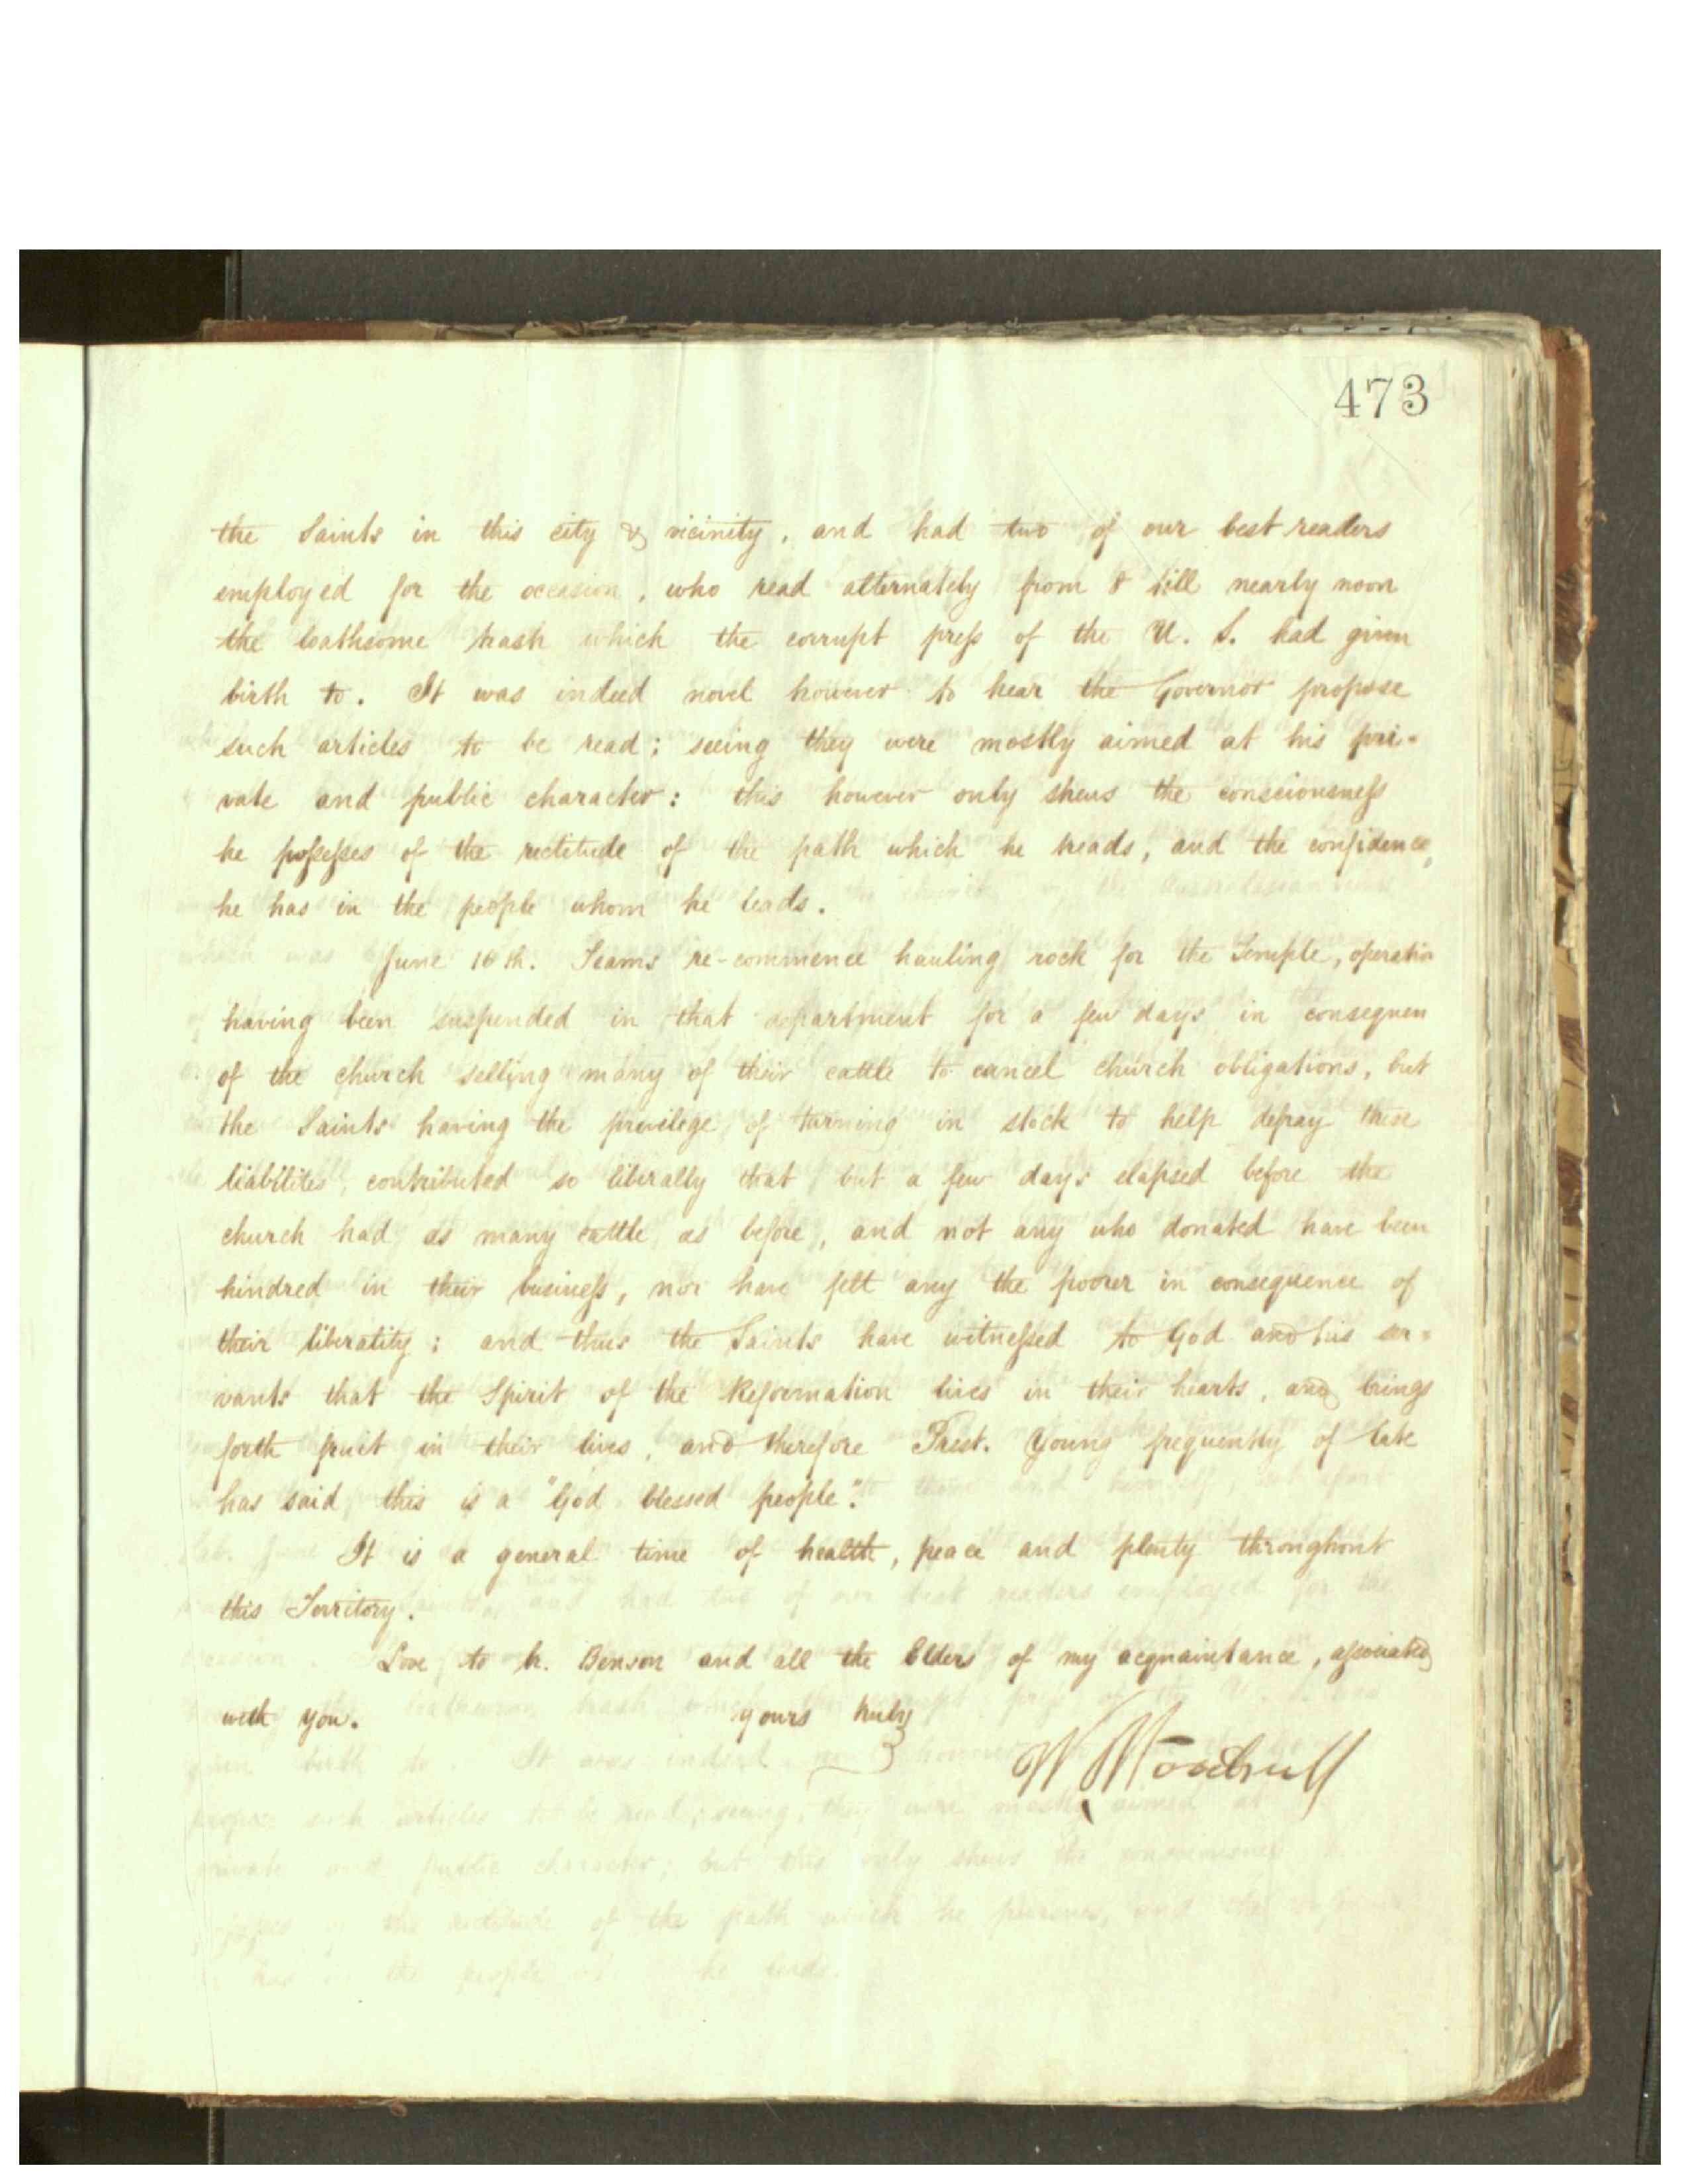 473
the Saints in this city & vicinity, and had two of our best readers
employed for the occasion, who read alternately from 8 till nearly noon
the loathsome trash which the corrupt press of the U. S. had given
birth to. It was indeed novel however to hear the Governor propose
such articles to be read; seeing they were mostly aimed at his pri-
vate and public character: this however only shews the consciousness
he possesses of the rectitude of the path which he treads, and the confidence,
he has in the people whom he leads.
June 16th. Teams re-commence hauling rock for the Temple, operation
having been suspended in that department for a few days in consequen
of the church selling many of their cattle to cancel church obligations, but
the Saints having the privilege of turning in stock to help defray these
liabilites, contributed so liberally that but a few days elapsed before the
church had as many cattle as before, and not any who donated have been
hindred in their business, nor have felt any the poorer in consequence of
their liberality; and thus the Saints have witnessed to God and his ser-
vants that the Spirit of the Reformation lives in their hearts, and brings
forth fruit in their lives, and therefore Prest. Young frequently of late
has said this is a "God blessed people".
It is a general time of health, peace and plenty throughout
this Territory.
Love to br. Benson and all the Elders of my acquaintance, associated
with you. yours truly
W. Woodruff